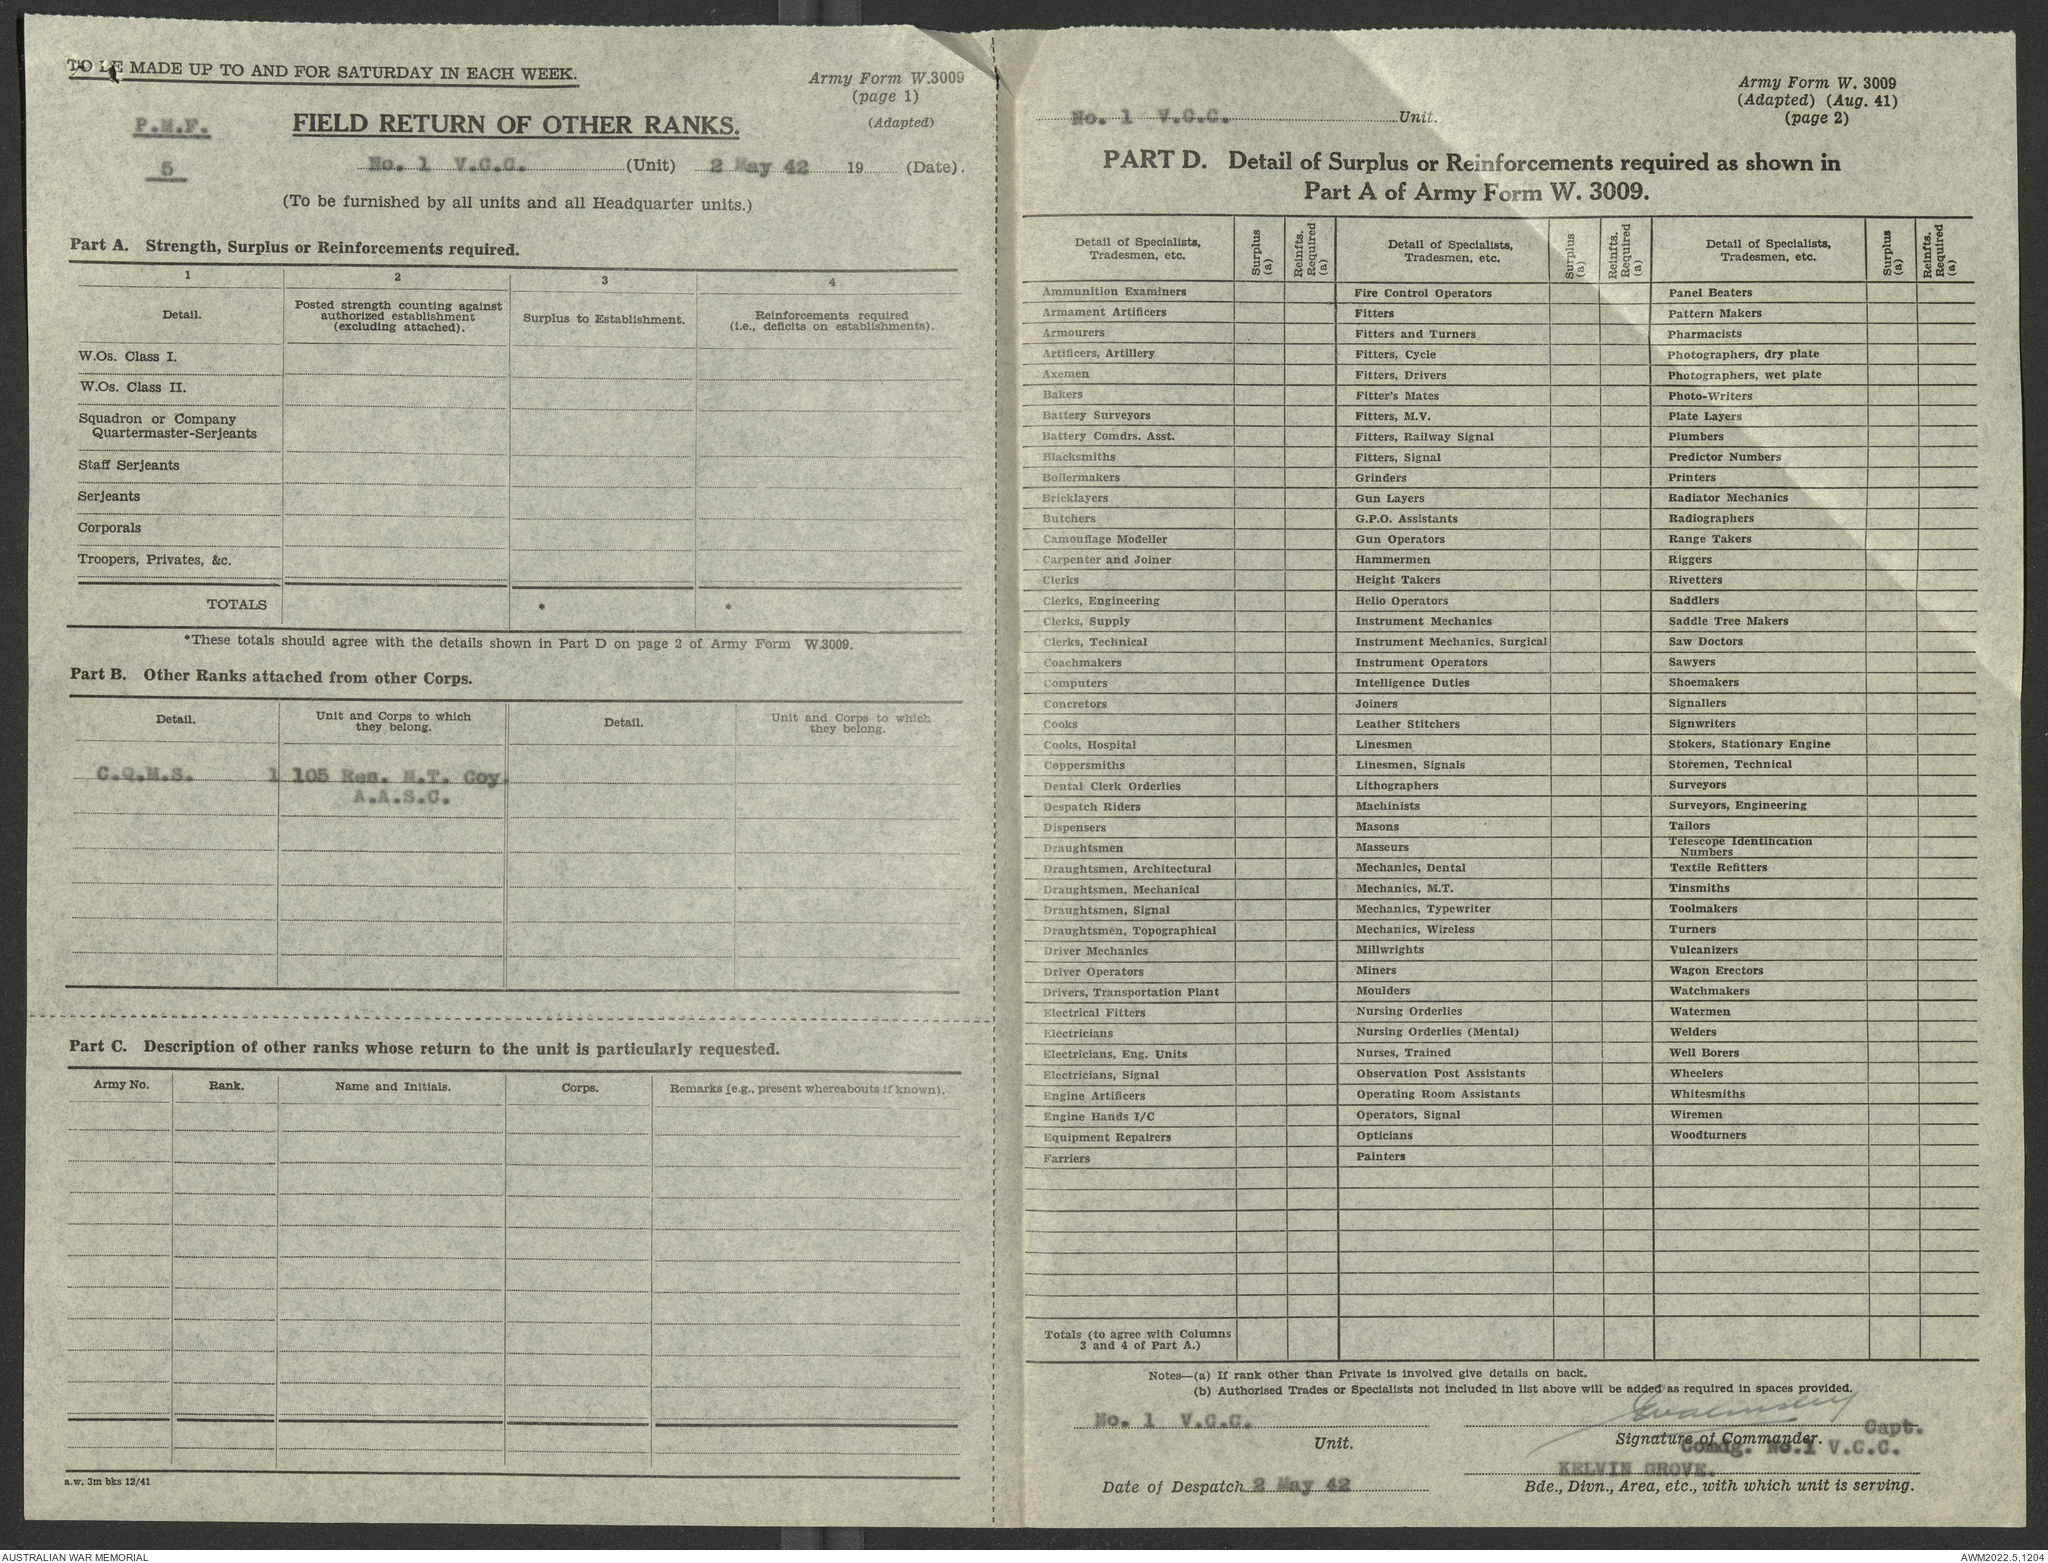 TO BE MADE UP TO AND FOR SATURDAY IN EACH WEEK.
Army Form W.3009
(page 1)
(Adapted)
P.M.F.
5
FIELD RETURN OF OTHER RANKS.
No. 1 V.C.C. (Unit) 2 May 42 19 (Date).
(To be furnished by all units and all Headquarter units.)
Part A. Strength, Surplus or Reinforcements required.
1 2 3 4
Detail.
Posted strength counting against
authorized establishment
(excluding attached).
Surplus to Establishment.
Reinforcements required
(i.e., deficits on establishments).
W.Os. Class I.
W.Os. Class II.
Squadron or Company
Quartermaster-Serjeants
Staff Serjeants
Serjeants
Corporals
Troopers, Privates, &c.
TOTALS * *
*These totals should agree with the details shown in Part D on page 2 of Army Form W.3009.
Part B. Other Ranks attached from other Corps.
Detail.
Unit and Corps to which
they belong.
Detail.
Unit and Corps to which
they belong.
C.Q.M.S. 1 105 Res. M.T. Coy.
A.A.S.C.
Part C. Description of other ranks whose return to the unit is particularly requested.
Army No. Rank. Name and Initials. Corps. Remarks (e.g., present whereabouts if known).
a.w. 3m bks 12/41
Army Form W. 3009
(Adapted) (Aug. 41)
(page 2)
No. 1 V.C.C. Unit.
PART D. Detail of Surplus or Reinforcements required as shown in
Part A of Army Form W. 3009.
Detail of Specialists,
Tradesmen, etc.
Surplus
(a)
Reinfts.
Required
(a)
Detail of Specialists,
Tradesmen, etc.
Surplus
(a)
Reinfts.
Required
(a)
Detail of Specialists,
Tradesmen, etc.
Surplus
(a)
Reinfts.
Required
(a)
Ammunition Examiners
Armament Artificers
Armourers
Artificers, Artillery
Axemen
Bakers
Battery Surveyors
Battery Comdrs. Asst.
Blacksmiths
Boilermakers
Bricklayers
Butchers
Camouflage Modeller
Carpenter and Joiner
Clerks
Clerks, Engineering
Clerks, Supply
Clerks, Technical
Coachmakers
Computers
Concretors
Cooks
Cooks, Hospital
Coppersmiths
Dental Clerk Orderlies
Despatch Riders
Dispensers
Draughtsmen
Draughtsmen, Architectural
Draughtsmen, Mechanical
Draughtsmen, Signal
Draughtsmen, Topographical
Driver Mechanics
Driver Operators
Drivers, Transportation Plant
Electrical Fitters
Electricians
Electricians, Eng. Units
Electricians, Signal
Engine Artificers
Engine Hands I/C
Equipment Repairers
Farriers
Fire Control Operators
Fitters
Fitters and Turners
Fitters, Cycle
Fitters, Drivers
Fitter's Mates
Fitters, M.V.
Fitters, Railway Signal
Fitters, Signal
Grinders
Gun Layers
G.P.O. Assistants
Gun Operators
Hammermen
Height Takers
Helio Operators
Instrument Mechanics
Instrument Mechanics, Surgical
Instrument Operators
Intelligence Duties
Joiners
Leather Stitchers
Linesmen
Linesmen, Signals
Lithographers
Machinists
Masons
Masseurs
Mechanics, Dental
Mechanics, M.T.
Mechanics, Typewriter
Mechanics, Wireless
Millwrights
Miners
Moulders
Nursing Orderlies
Nursing Orderlies (Mental)
Nurses, Trained
Observation Post Assistants
Operating Room Assistants
Operators, Signal
Opticians
Painters
Panel Beaters
Pattern Makers
Pharmacists
Photographers, dry plate
Photographers, wet plate
Photo-Writers
Plate Layers
Plumbers
Predictor Numbers
Printers
Radiator Mechanics
Radiographers
Range Takers
Riggers
Rivetters
Saddlers
Saddle Tree Makers
Saw Doctors
Sawyers
Shoemakers
Signallers
Signwriters
Stokers, Stationary Engine
Storemen, Technical
Surveyors
Surveyors, Engineering
Tailors
Telescope Identification
Numbers
Textile Refitters
Tinsmiths
Toolmakers
Turners
Vulcanizers
Wagon Erectors
Watchmakers
Watermen
Welders
Well Borers
Wheelers
Whitesmiths
Wiremen
Woodturners
Totals (to agree with Columns
3 and 4 of Part A.)
Notes—(a) If rank other than Private is involved give details on back.
(b) Authorised Trades or Specialists not included in list above will be added as required in spaces provided.
No. 1 V.C.C.
Unit.
Capt.
Signature of Commander.
Comdg. No.1 V.C.C.
KELVIN GROVE.
Date of Despatch 2 May 42
Bde., Divn., Area, etc., with which unit is serving.
AUSTRALIAN WAR MEMORIAL
AWM2022.5.1204